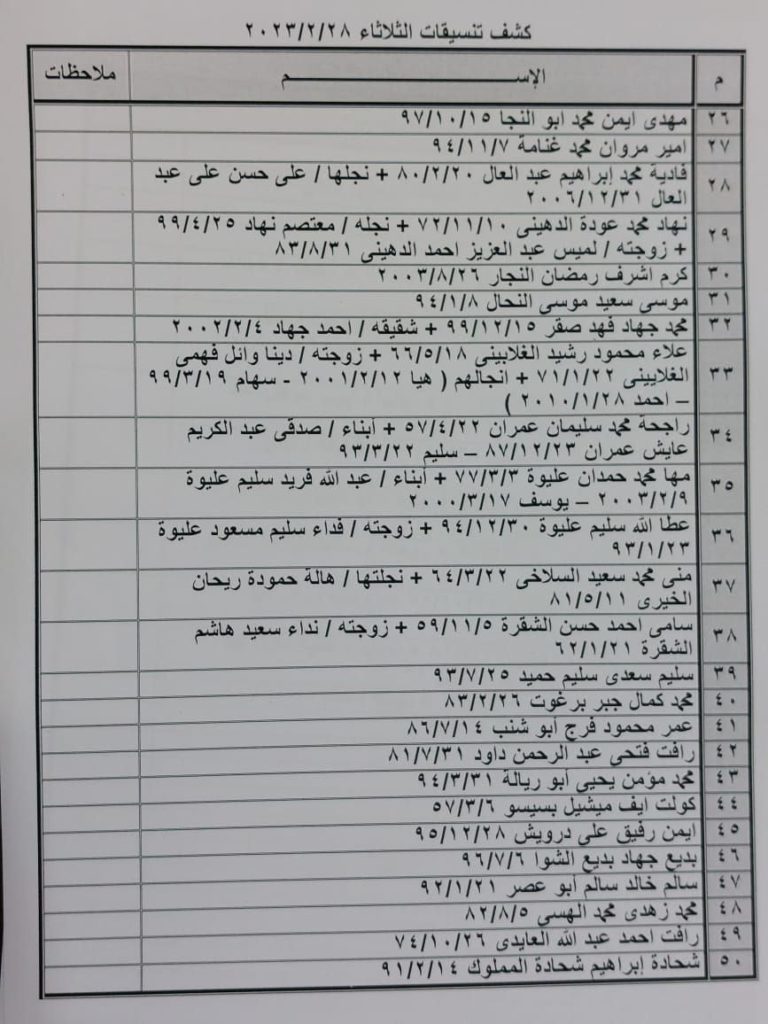 كشف تنسيقات الثلاثاء ٢٠٢٣/٢/٢٨
م الإســـم ملاحظات
٢٦ مهدى ايمن محمد ابو النجا ٩٧/١٠/١٥
٢٧ امير مروان محمد غنامة ٩٤/١١/٧
٢٨ فادية محمد إبراهيم عبد العال ٨٠/٢/٢٠ + نجلها / على حسن على عبد
العال ٢٠٠٦/١٢/٣١
٢٩ نهاد محمد عودة الدهينى ٧٢/١١/١٠ + نجله / معتصم نهاد ٩٩/٤/٢٥
+ زوجته / لميس عبد العزيز احمد الدهينى ٨٣/٨/٣١
٣٠ كرم اشرف رمضان النجار ٢٠٠٣/٨/٢٦
٣١ موسى سعيد موسى النحال ٩٤/١/٨
٣٢ محمد جهاد فهد صقر ٩٩/١٢/١٥ + شقيقه / احمد جهاد ٢٠٠٢/٢/٤
٣٣ علاء محمود رشيد الغلايينى ٦٦/٥/١٨ + زوجته / دينا وائل فهمى
الغلايينى ٧١/١/٢٢ + انجالهم ( هيا ٢٠٠١/٢/١٢ - سهام ٩٩/٣/١٩
– احمد ٢٠١٠/١/٢٨ )
٣٤ راجحة محمد سليمان عمران ٥٧/٤/٢٢ + أبناء / صدقى عبد الكريم
عايش عمران ٨٧/١٢/٢٣ – سليم ٩٣/٣/٢٢
٣٥ مها محمد حمدان عليوة ٧٧/٣/٣ + أبناء / عبد الله فريد سليم عليوة
٢٠٠٣/٢/٩ – يوسف ٢٠٠٠/٣/١٧
٣٦ عطا الله سليم عليوة ٩٤/١٢/٣٠ + زوجته / فداء سليم مسعود عليوة
٩٣/١/٢٣
٣٧ منى محمد سعيد السلاخى ٦٤/٣/٢٢ + نجلتها / هالة حمودة ريحان
الخيرى ٨١/٥/١١
٣٨ سامى احمد حسن الشقرة ٥٩/١١/٥ + زوجته / نداء سعيد هاشم
الشقرة ٦٢/١/٢١
٣٩ سليم سعدى سليم حميد ٩٣/٧/٢٥
٤٠ محمد كمال جبر برغوت ٨٣/٢/٢٦
٤١ عمر محمود فرج أبو شنب ٨٦/٧/١٤
٤٢ رافت فتحى عبد الرحمن داود ٨١/٧/٣١
٤٣ محمد مؤمن يحيى أبو ريالة ٩٤/٣/٣١
٤٤ كولت ايف ميشيل بسيسو ٥٧/٣/٦
٤٥ ايمن رفيق على درويش ٩٥/١٢/٢٨
٤٦ بديع جهاد بديع الشوا ٩٦/٧/٦
٤٧ سالم خالد سالم أبو عصر ٩٢/١/٢١
٤٨ محمد زهدى محمد الهسى ٨٢/٨/٥
٤٩ رافت احمد عبد الله العايدى ٧٤/١٠/٢٦
٥٠ شحادة إبراهيم شحادة المملوك ٩١/٢/١٤